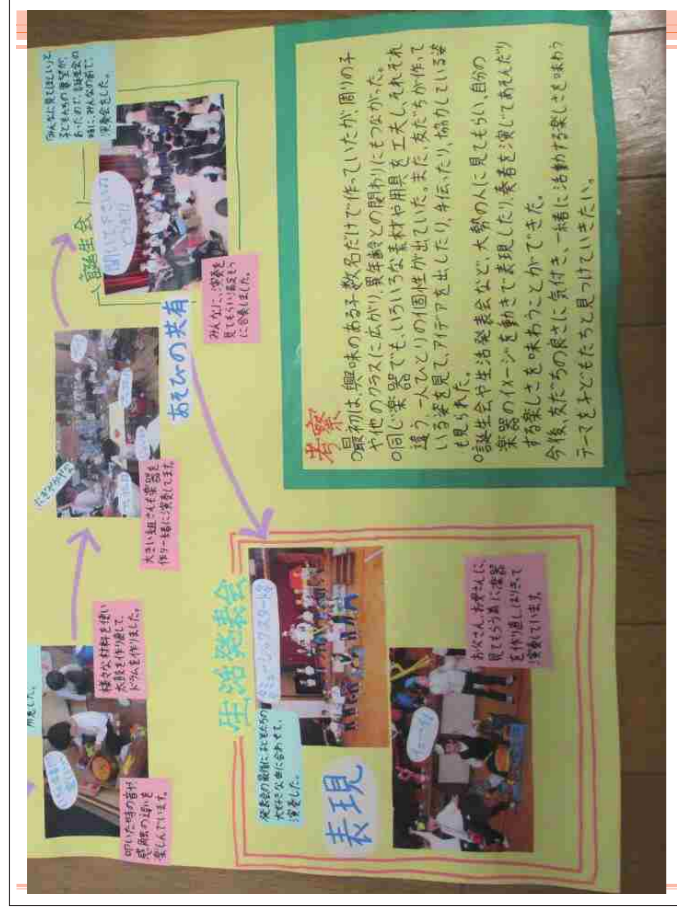 用意した。
叩いた時の音や、
感触の違いを
楽しんでいます。
様々な材料を使い
太鼓を作り直して、
ドラムを作りました。
大きい組さんも楽器を
作り一緒に演奏してます。
あそびの共有
誕生会
「みんなに見てほしい」と
子どもたちの要望が
あったので、誕生会の
時に、みんなの前で、
演奏会をした。
聞いて下さいの
みんなに、演奏を
見てもらい満足そう
に合奏しました。
生活発表会
発表会の最後に子どもたちの
大好きな曲に合わせて、
演奏した。
ミュージックスタート
表現
お父さん、お母さんに、
見てもらう為に楽器
を作り直し、はりきって
演奏しています。
考察
○最初は、興味のある子数名だけで作っていたが、周りの子
や他のクラスに広がり、異年齢との関わりにもつながった。
○同じ楽器でも、いろいろな素材や用具を工夫し、それぞれ
違う一人ひとりの個性が出ていた。また、友だちが作って
いる姿を見て、アイデアを出したり、手伝ったり、協力している姿
も見られた。
○誕生会や生活発表会など、大勢の人に見てもらい、自分の
楽器のイメージを動きで表現したり、奏者を演じてあそんだり
する楽しさを味わうことができた。
今後、友だちの良さに気付き、一緒に活動する楽しさを味わう
テーマを子どもたちと見つけていきたい。